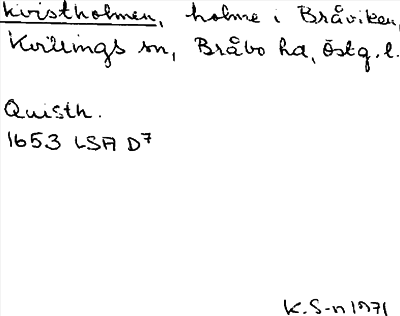 Kvistholmen, holme i Bråviken,
Kvillings sn, Bråbo hd, Östg. l.
Quisth.
1653 LSA D7
K.S-n 1971